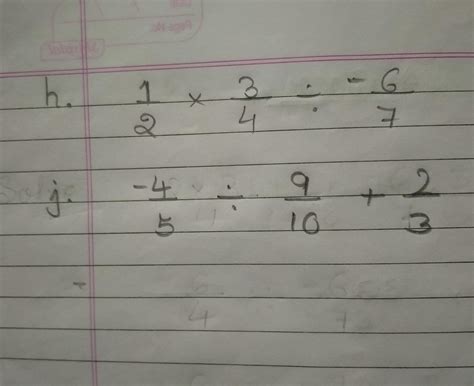 h. 1/2 × 3/4 ÷ -6/7
j. -4/5 ÷ 9/10 + 2/3